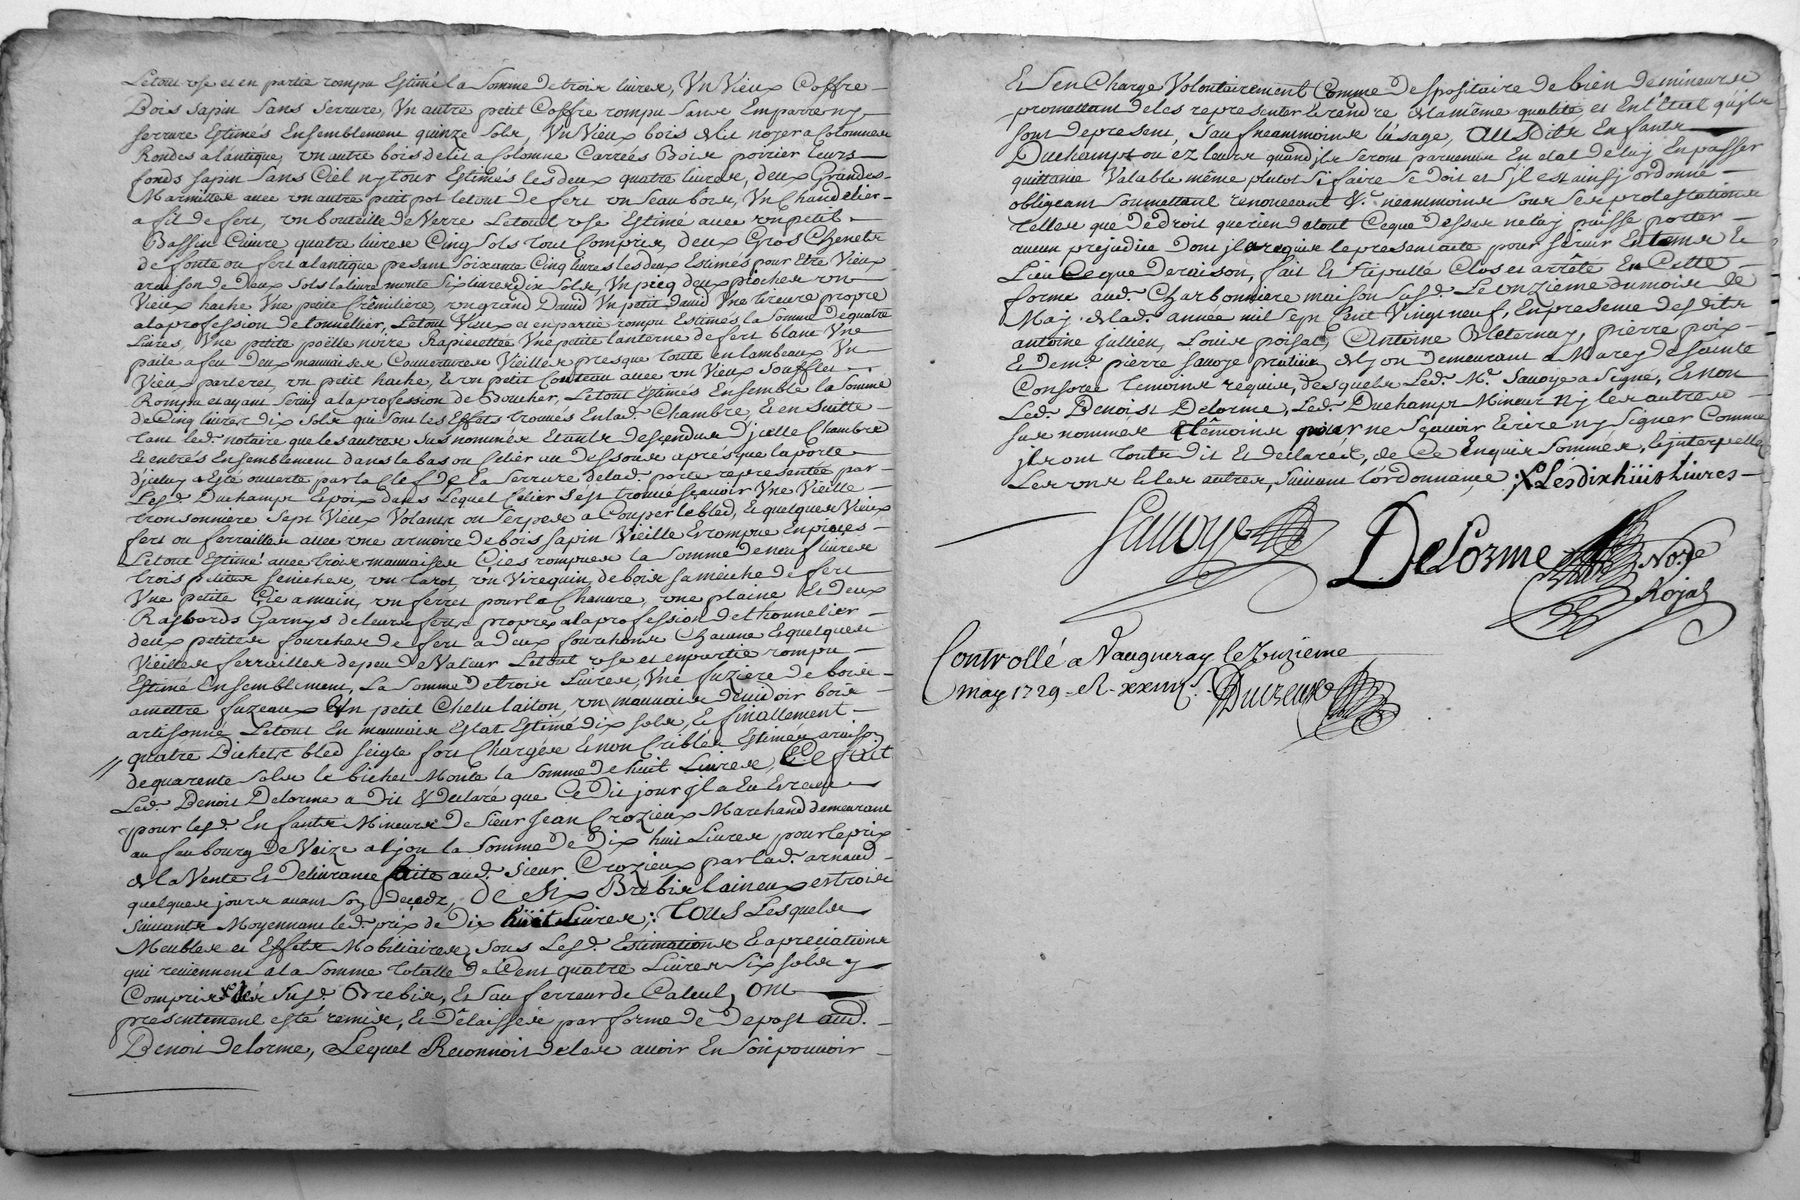 Letout use et en partie rompu Estimé la Somme de trois livres, Un Vieux Coffre
Bois Sapin Sans Serrure, Un autre petit Coffre rompu Sans Emparre ny
Serrure Estimés Ensemblement quinze Sols, Un Vieux bois de lit noyer a Colomnes
Rondes a l'antique, un autre bois de lit a Colomne Carrées Bois poirier leurs
fonds Sapin Sans Ciel ny tour Estimés les deux quatre livres, deux Grandes
Marmittes avec un autre petit pot letout de fert un Seau bois, Un Chandelier
a fil de fert, un bouteille de Verre Letout use Estimé avec un petit
Bassin Cuivre quatre livres Cinq Sols tout Compris, deux Gros Chenets
de fonte ou fert a lantique pesant Soixante Cinq livres les deux Estimés pour Etre Vieux
a raison de Deux Sols la livre monte Six livres dix Sols, Un picq deux pioches un
Vieux hache Une petite Crémilière, un grand David Un petit david Une tireure propre
a la profession de tonnellier, Letout Vieux et en partie rompu Estimés la Somme de quatre
Livres, Une petite poëlle noire Rapiecettée Une petite lanterne de fert blanc Une
paile a feu deux mauvaises Couvertures Vieilles presque toute en lambeaux Un
Vieux parteret, un petit hache, & un petit Couteau avec un Vieux Soufflet
Rompu et ayant Servy a la profession de Boucher, Letout Estimés Ensemble la Somme
de Cinq livres dix Sols qui Sont les Effets trouvés En lad. Chambre, & en Suitte
tant led. notaire que les autres Sus nommés Etants descendus d'jcelle Chambre
& entrés Ensemblement dans le bas ou Celier au dessous aprés que la porte
d'jceluy a Esté ouverte par la Clef de la Serrure de lad. porte representée par
Lesd. Duchamps & poix dans Lequel Celier S'est trouvé Scavoir Une Vieille
tronsonniere Sept Vieux Volants ou Serpes a Couper le bled, & quelques Vieux
fert ou ferrailles avec une armoire de bois Sapin Vieille & rompue En pieces
Letout Estimé avec trois mauvaises Cies rompues la Somme de neuf livres
trois petites Seiches, un tarot, un Virequin, de bois Sa meiche de fert
Une petite Cie a main, un ferret pour la Chanvre, une plaine & deux
Rasbords Garnys de leurs ferts propres a la profession de thonnelier
deux petites fourches de fert a deux fourchons Chacune & quelques
Vieilles ferrailles de peu de Valeur Letout use et en partie rompu
Estimé Ensemblement, La Somme de trois Livres, Une fuziere de bois
a mettre fuzeaux Un petit Chelu laiton, un mauvais devidoir bois
artisonné Letout En mauvais Estat Estimé dix Sols, & finallement
quatre Bichets bled Seigle fort Chargés & non Criblés Estimés a raison
de quarente Sols le bichet Monte la Somme de huit Livres, Ce fait
Led. Benoit Delorme a Dit & Declaré que Ce Dit jour jl a Eu & receu
pour lesd. Enfants Mineurs de Sieur Jean Crozieux Marchand demeurant
au faubourg de Vaize a Lyon la Somme de Dix huit Livres pour le prix
de la Vente & Delivrance faite aud. Sieur Crozieux par lad. arnaud
quelques jours avant Son Deceds, de Six Brebis laineux et trois
Suivants Moyennant led. prix de Dix huit Livres; Tous Lesquels
Meubles et Effets Mobiliaires, Sous Lesd. Estimations & apreciations
qui reviennent a la Somme Totalle de Cent quatre Livres Six Sols y
Compris les Susd. Brebis, Et Sauf erreur de Calcul, Ont
presentement esté remis, & Délaissés par forme de Depost aud.
Benoit Delorme, Lequel Reconnoit de les avoir En Son pouvoir
& S'en Charge Volontairement Comme Despositaire de bien de mineurs
promettant de les representer & rendre de la même qualité et En l'Etat qu'jls
Sont de present, Sauf neantmoins l'usage, Aus Dits Enfants
Duchamps ou éz leurs quand jls Seront parvenus En etat de luy En passer
quittance Valable même plutot Si faire Se Doit et S'jl est ainsi ordonné
obligeant Soumettant renonceant &c. neanmoins Sous Ses protestations
telles que de droit que rien de tout Ce que dessus ne luy puisse porter
aucun prejudice Dont jl a requis le present acte pour Servir En tems &
Lieu Ce que De raison, fait & Stipullé Clos et arrêté En Cette
forme aud. Charbonniere maison Susd. Le onzieme du mois de
May de lad. année mil Sept Cent Vingt neuf, En presence desdits
antoine jullien, Louis poisat, Antoine Bleternay, pierre poix
& Dem. pierre Savoye praticien de Lyon demeurant a Marcy de Sainte
Consorce temoins requis, desquels Led. Mr. Savoye a Signé, & non
Led. Benoist Delorme, Led. Duchamps Mineur ny les autres
Sus nommés & témoins pour ne Sçavoir Ecrire ny Signer Comme
jls ont touts dit & declaré, de Ce Enquis Sommés, & jnterpellés
Les uns & les autres, Suivant l'ordonnance; X Les dix huit Livres
Savoye
DeLorme Nore
Royal
Controllé a Vaugneray le Onzieme
may 1729